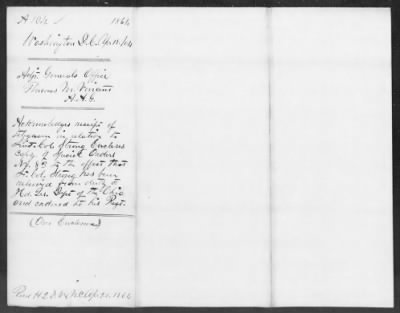 A 1864
Washington D.C. Apr 18/64
Adjt. Generals Office
Thomas M. Vincent
A.A.G.
Acknowledges receipt of
telegram in relation to
Lieut. Col. Strong Encloses
Copy of Special Orders
No. 83 to the effect that
Lt. Col. Strong has been
relieved from duty at
Hd. Qrs. Dept of the Ohio
and ordered to his Regt.
(One Enclosure)
Rec'd H.Q. Apr 1864